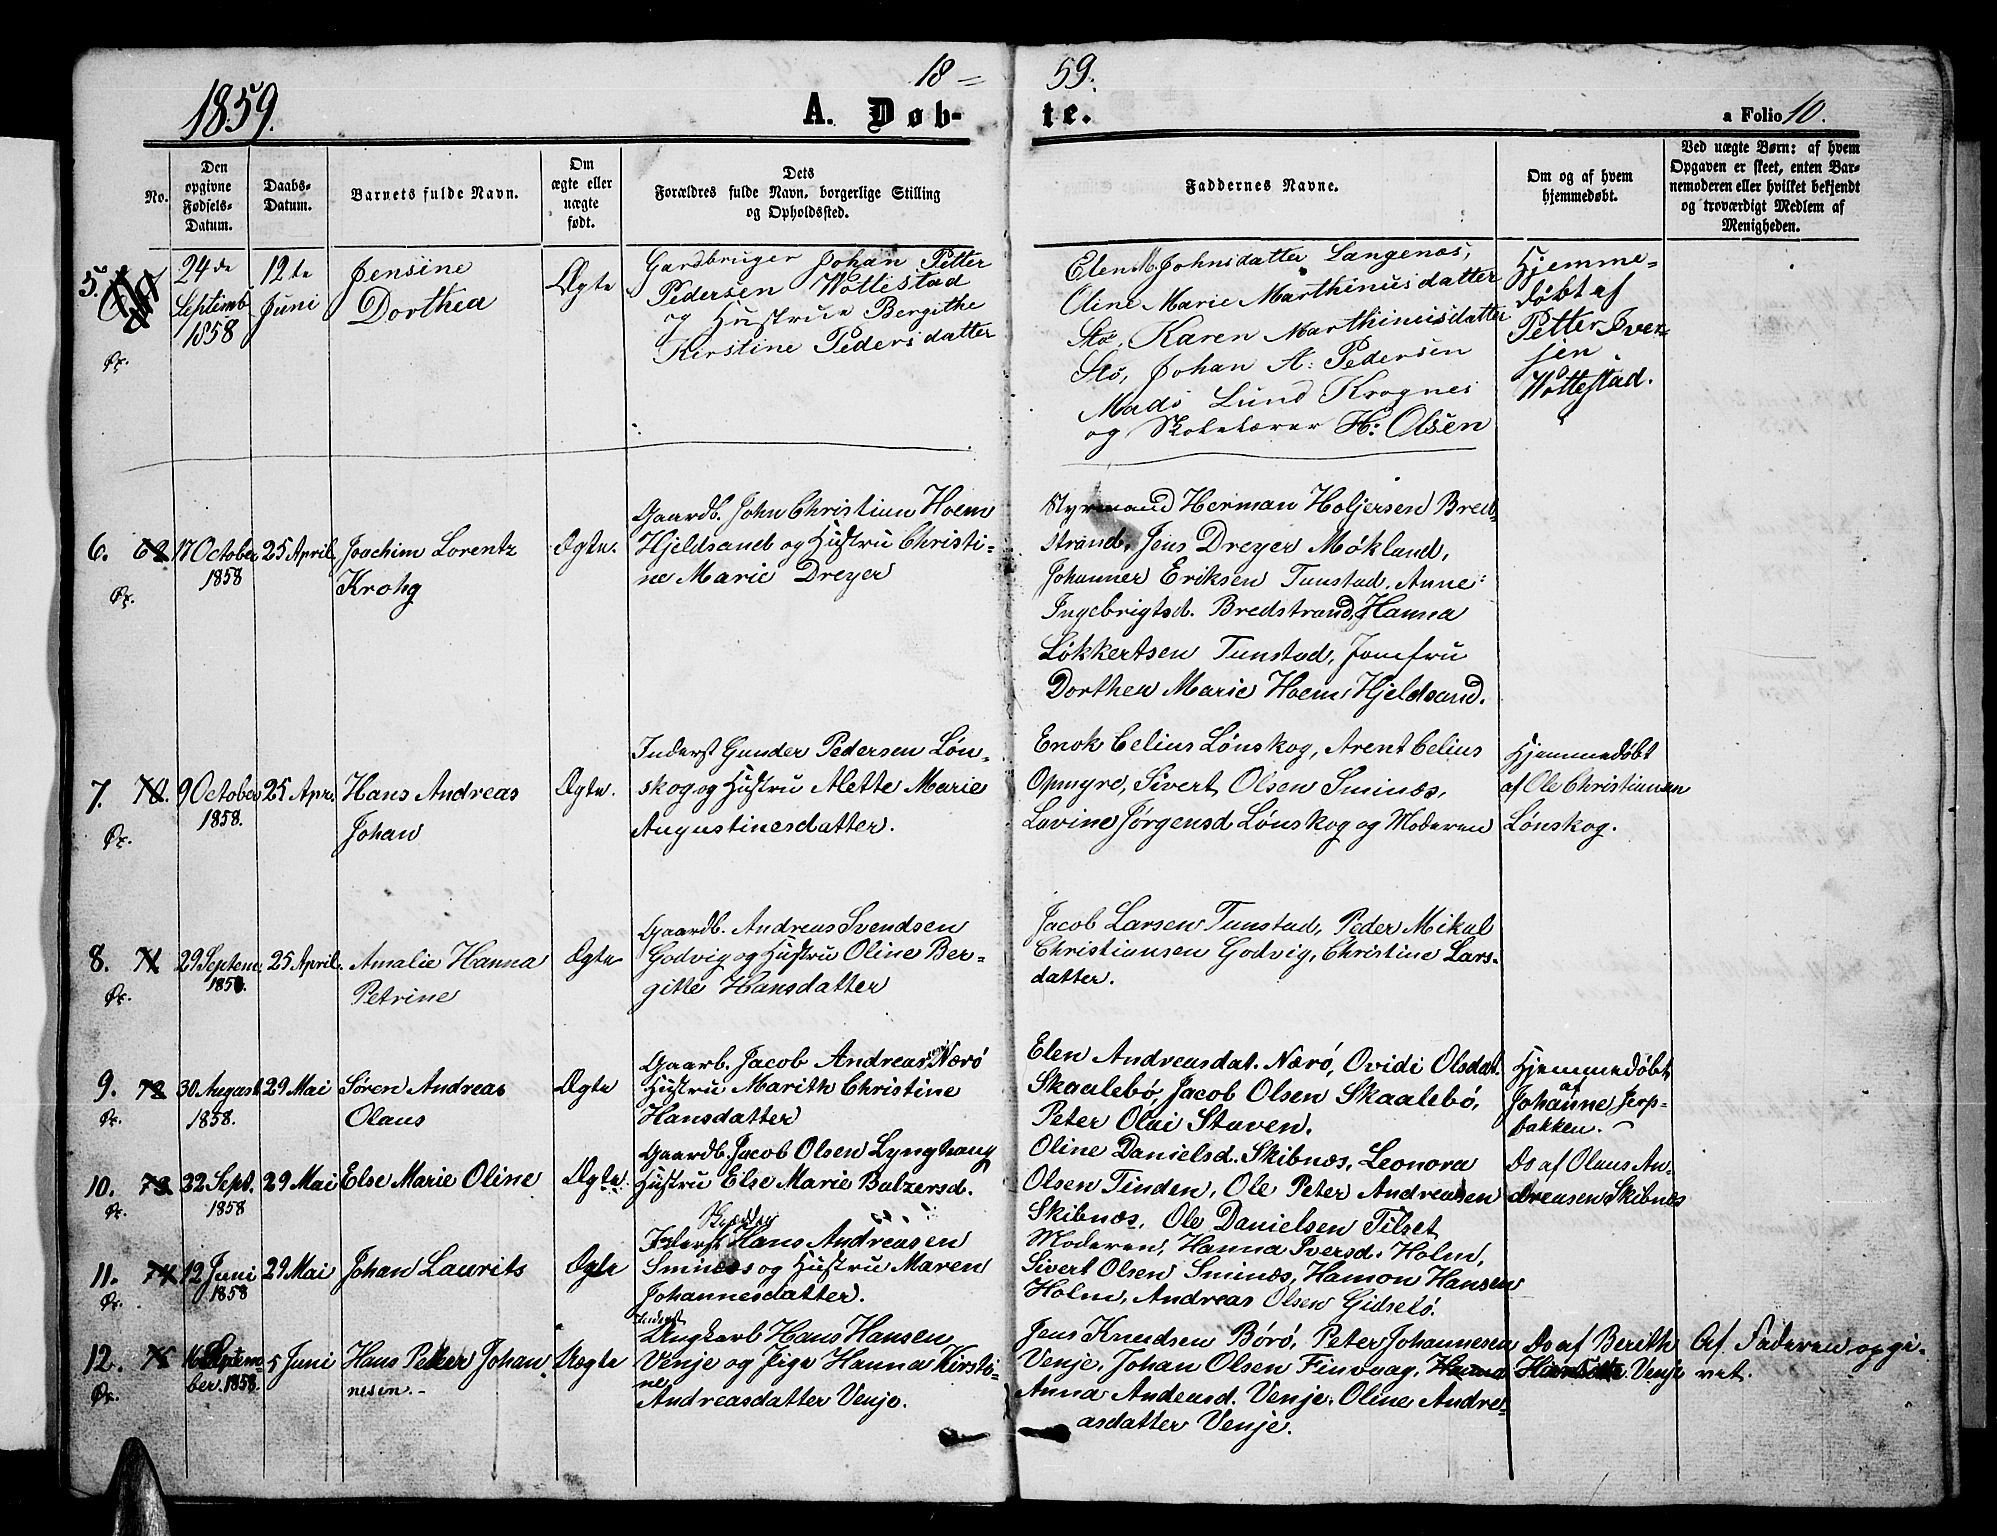 18 = 59.
1859.
A. Døbte.
a Folio 10.
No.
Den opgivne Fødsels-Datum.
Daabs-Datum.
Barnets fulde Navn.
Om ægte eller uægte født.
Dets Forældres fulde Navn, borgerlige Stilling og Opholdssted.
Faddernes Navne.
Om og af hvem hjemmedøbt.
Ved uægte Børn: af hvem Opgaven er skeet, enten Barnemoderen eller hvilket bekjendt og troværdigt Medlem af Menigheden.
5.
24de
Septemb
1858
12te
Juni
Jensine
Dorthea
Ægte
Gardbruger Johan Petter
Pedersen Wottestad
og Hustrue Bergithe
Kirstine Pedersdatter
Elen M. Johnsdatter Langenæs,
Oline Marie Marthinusdatter
Stø, Karen Marthinusdatter
Stø, Johan A: Pedersen
Mads Lund Krognes
og Skolelærer H: Olsen
Hjemme-
døbt af
Petter Iver-
sen
Wottestad.
6.
17 October
1858
25 April
Joachim Lorentz
Krohg
Ægte.
Gaardb. John Christian Hoem
Hjeldsand og Hustru Christi-
ne Marie Dreyer
Styrmand Herman Holjersen Bred-
strand, Jens Dreyer Møkland,
Johanner Eriksen Tunstad, Anne
Ingebrigtsd. Bredstrand, Hanna
Løkkertsen Tunstad, Jomfru
Dorthea Marie Hoem, Hjeldsand.
7.
70.
9 October
1858.
25 Apr.
Hans Andreas
Johan
Ægte.
Inderst Gunder Pedersen Løn-
skog og Hustru Alette Marie
Augustinesdatter.
Enok Celius Lønskog, Arent Celius
Opmyre, Sivert Olsen Sminæs,
Lovine Jørgensd Lønskog og Moderen
Hjemmedøbt
af Ole Christiansen
Lønskog.
8.
71
29 Septem.
1858.
25 April.
Amalie Hanna
Petrine
Ægte
Gaardb. Andreas Svendsen
Godvig og Hustru Oline Ber-
gitte Hansdatter
Jacob Larsen Tunstad, Peder Mikal
Christiansen Godvig, Christine Lars-
datter.
9.
72
30 August
1858.
29 Mai
Søren Andreas
Olaus
Ægte
Gaarb. Jacob Andreas Nærø
Hustru Marith Christine
Hansdatter
Elen Andreasdat. Nærø, Ovidi Olsdat.
Skaalebø, Jacob Olsen Skaalebø,
Peter Olai Staven.
Hjemmedøbt
af
Johanne Jerp-
bakken.
10.
73
22 Sept.
1858
29 Mai
Else Marie Oline
Ægte
Gaardb. Jacob Olsen Lynghaug
Hustru Else Marie Balzersd.
Oline Danielsd. Skibnæs, Leonora
Olsen Tinden, Ole Peter Andreasen
Skibnæs, Ole Danielsen Tilset
Do af Olaus An-
dreasen Skibnæs
11.
74
12 Juni
1858
29 Mai
Johan Laurits
Ægte
Inderst Hans Andreasen
Sminæs og Hustru Maren
Johannesdatter.
Moderen, Hanna Iversd. Holm,
Sivert Olsen Sminæs, Hamon Hansen
Holm, Andreas Olsen Gidselø.
12.
75
16 Septem
ber. 1858.
5 Juni
Hans Peter Johan
nesen.
Uægte
Inderst
Ungkarl Hans Hansen
Venje og Pige Hanna Kirsti-
ne
Andreasdatter Venje.
Jens Knudsen Børø, Peter Johannesen
Venje, Johan Olsen Finvaag,
Anna Andeasd. Venje, Oline Andre-
asdatter Venje.
Do af Berith
Venje
Af Faderen opgi-
vet.